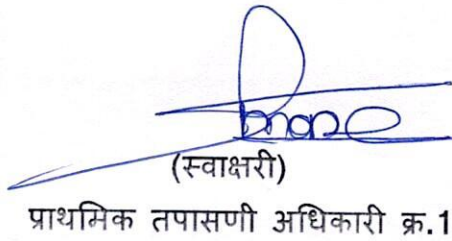 (स्वाक्षरी)
प्राथमिक तपासणी अधिकारी क्र.1